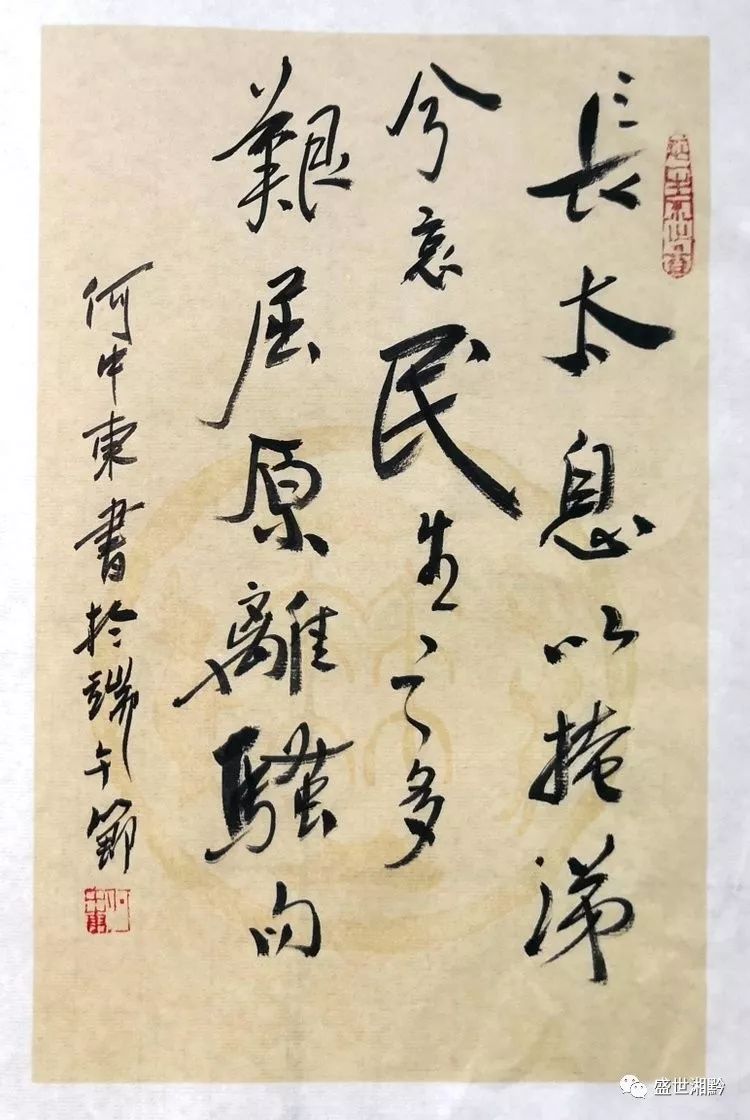 長太息以掩涕
兮哀民生之多
艱屈原離騷句
何中東書於端午節
何中東
盛世湘黔